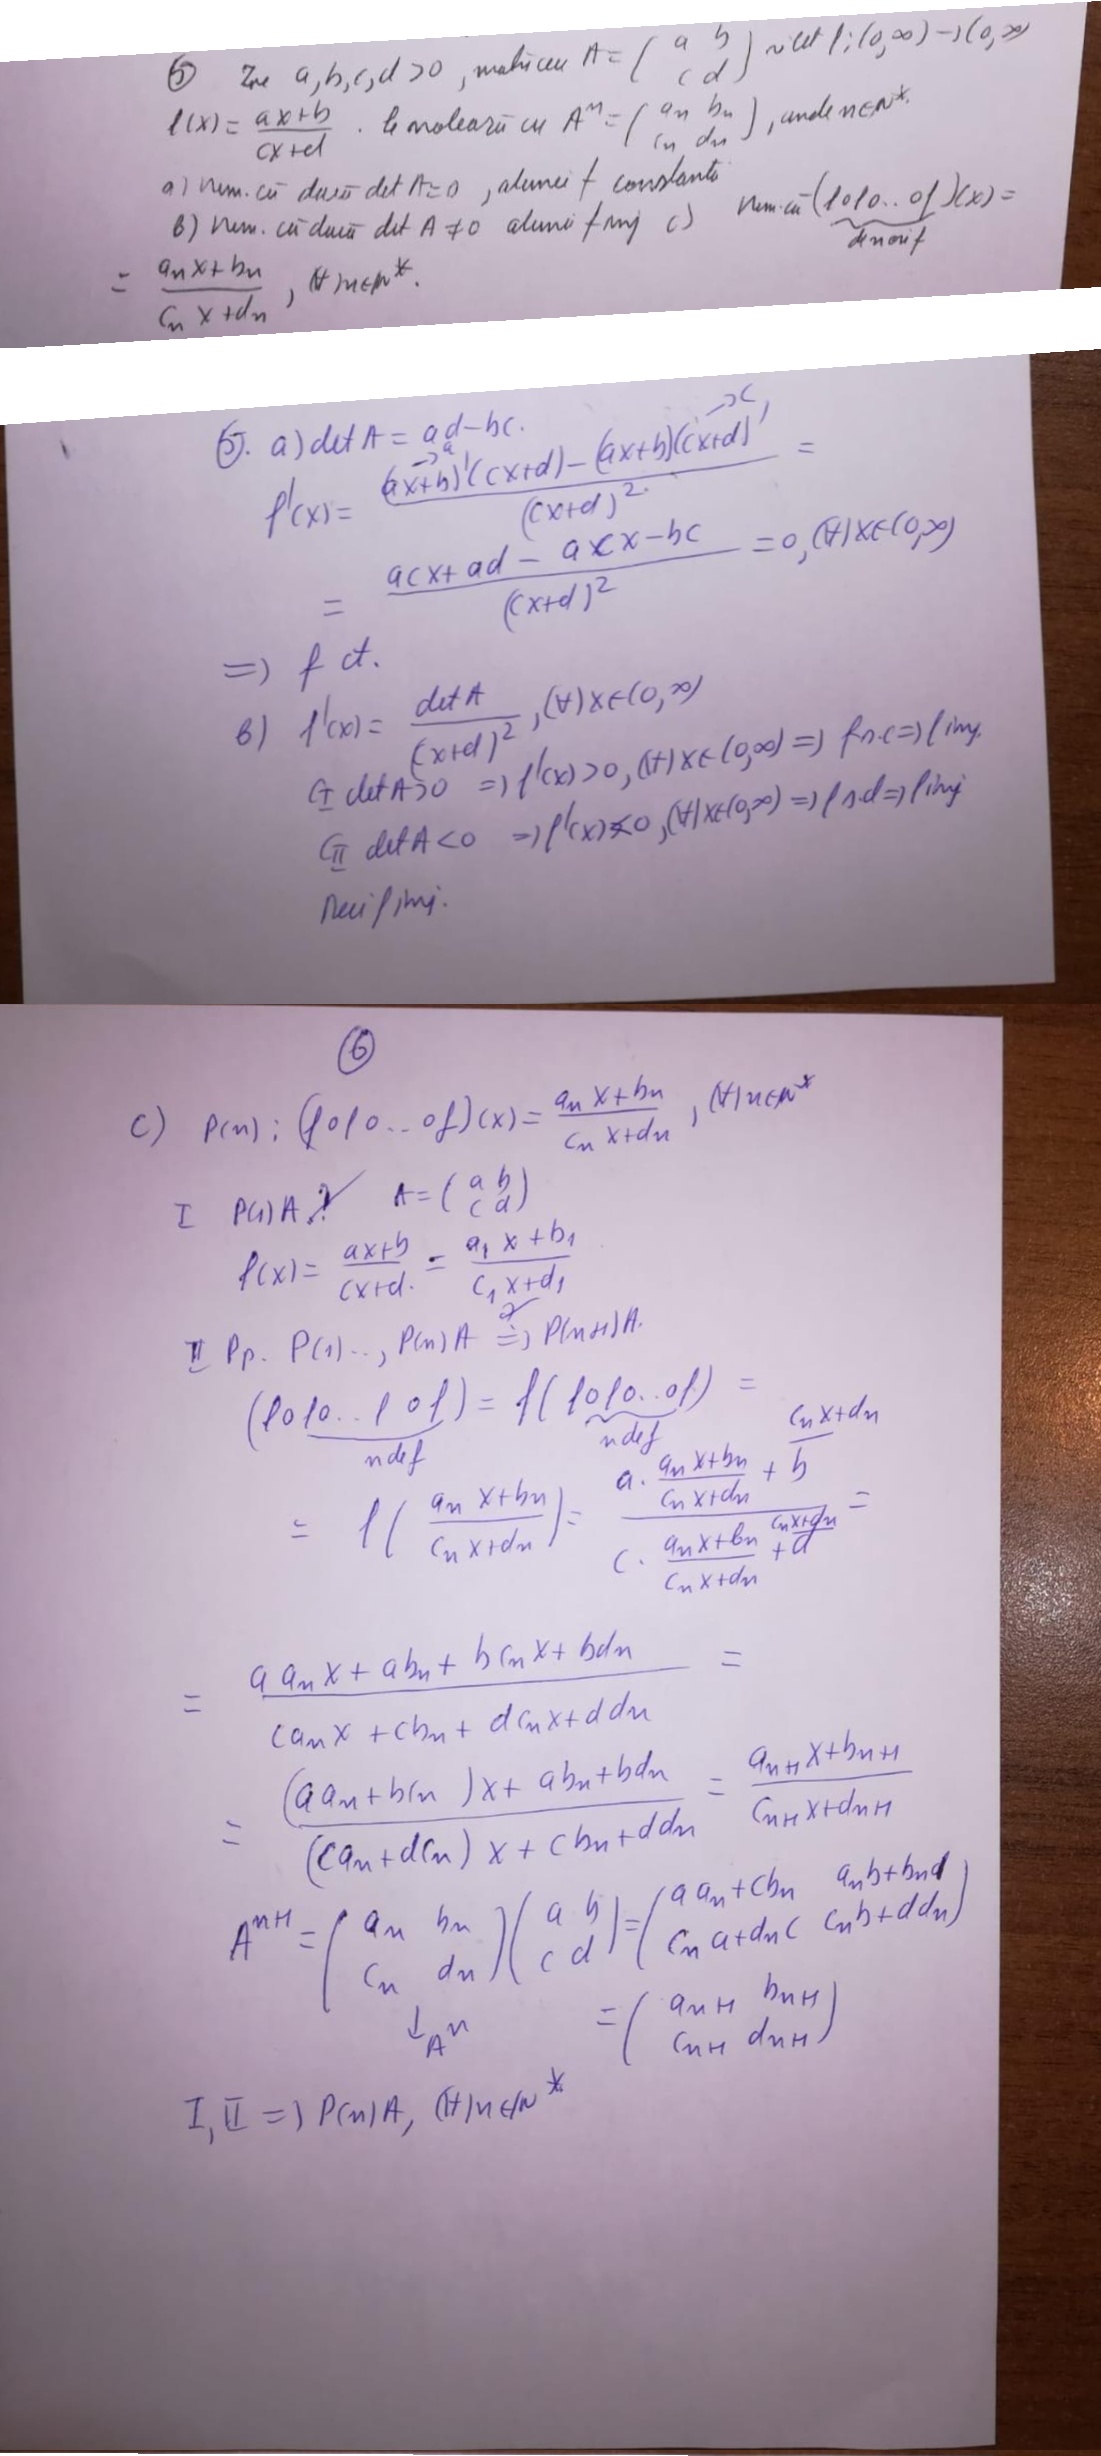 ⑤ Fie a,b,c,d >0, matricea A = ( a b ; c d ) și f: (0,∞)→(0,∞)
f(x) = (ax+b)/(cx+d). Se notează cu Aⁿ = ( an bn ; cn dn ), unde n∈N*.
a) Dem. că dacă det A=0, atunci f constantă
b) Dem. că dacă det A ≠ 0 atunci f inj c) Dem. că (f∘f∘..∘f)(x) =
de n ori f
= (an x+bn)/(cn x+dn), (∀)n∈N*.
⑤. a) det A = ad-bc.
→a →c
f'(x) = ((ax+b)'(cx+d) - (ax+b)(cx+d)')/(cx+d)² =
= (acx+ad - acx-bc)/(cx+d)² = 0, (∀)x∈(0,∞)
=> f ct.
b) f'(x) = det A/(cx+d)², (∀)x∈(0,∞)
C I det A>0 => f'(x)>0, (∀)x∈(0,∞) => f s.c => f inj.
C II det A<0 => f'(x)<0, (∀)x∈(0,∞) => f s.d => f inj
Deci f inj.
⑥
c) P(n): (f∘f∘..∘f)(x) = (an x+bn)/(cn x+dn), (∀)n∈N*
I P(1) A ? A = ( a b ; c d )
f(x) = (ax+b)/(cx+d) = (a1 x+b1)/(c1 x+d1)
II Pp. P(1).., P(n) A ?=> P(n+1) A.
(f∘f∘..f∘f) = f(f∘f∘..∘f) =
n de f n de f
= f((an x+bn)/(cn x+dn)) = (a·(an x+bn)/(cn x+dn) + cn x+dn/b)/(c·(an x+bn)/(cn x+dn) + cn x+dn/d) =
= (a an x + abn + b cn x + bdn)/(can x + cbn + dcn x + ddn) =
= ((aan+bcn)x + abn+bdn)/((can+dcn)x + cbn+ddn) = (an+1 x+bn+1)/(cn+1 x+dn+1)
Aⁿ⁺¹ = ( an bn ; cn dn )( a b ; c d ) = ( aan+cbn anb+bnd ; cna+dnc cnb+ddn )
↓Aⁿ = ( an+1 bn+1 ; cn+1 dn+1 )
I, II => P(n) A, (∀)n∈N*